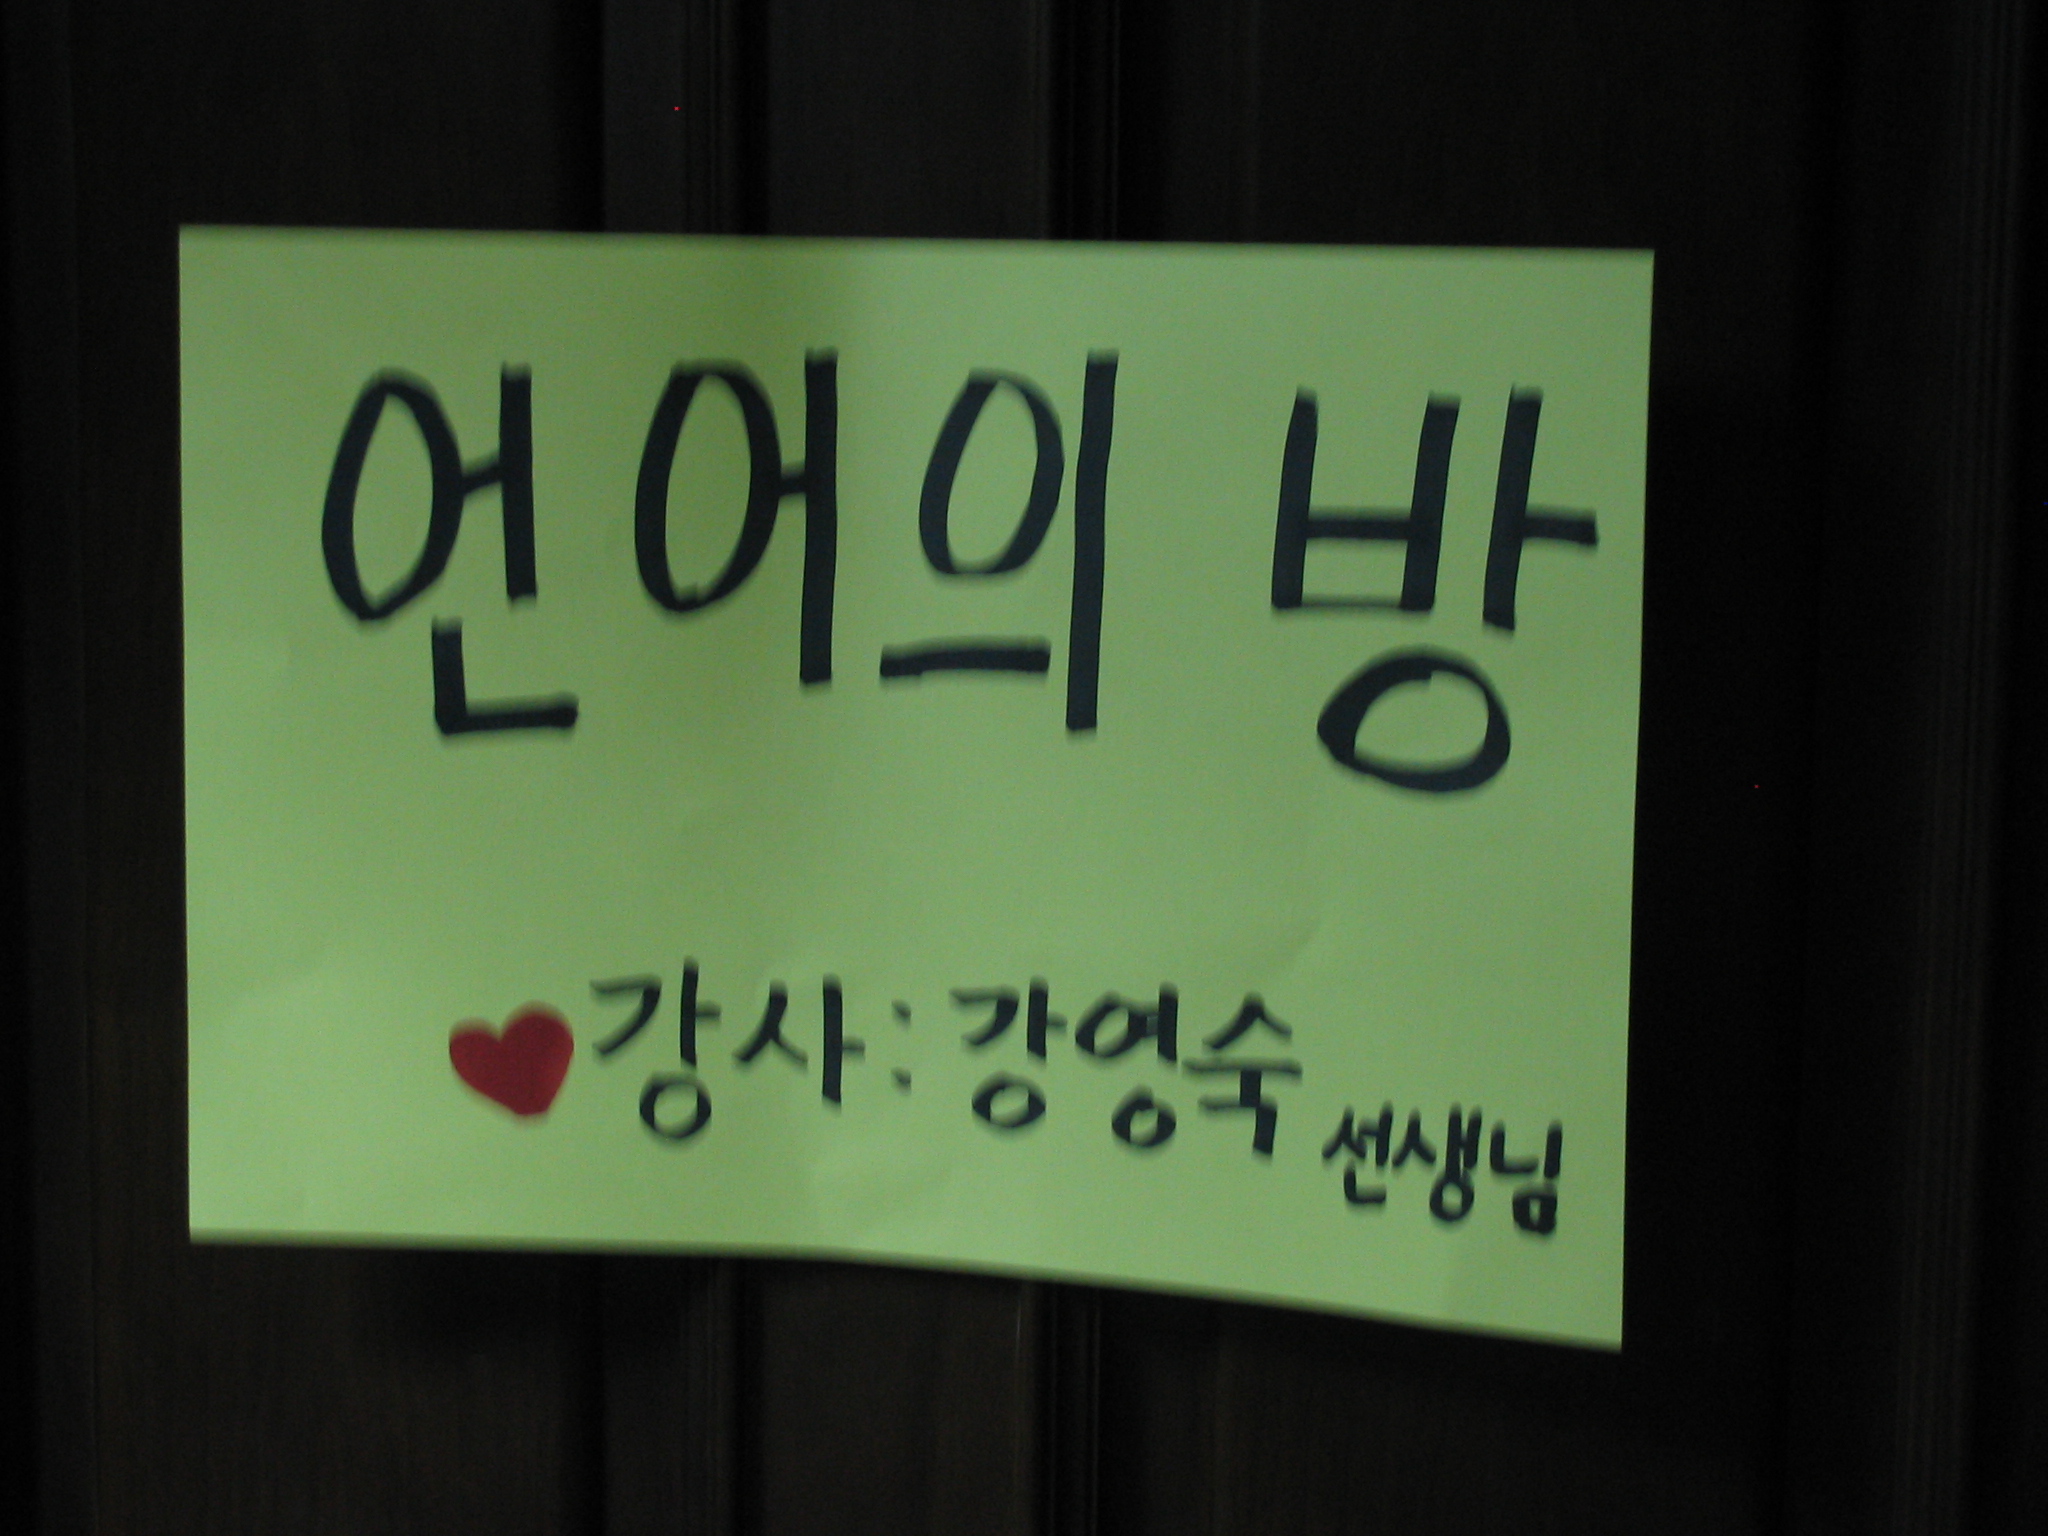 언어의 방
♥강사:강영숙 선생님